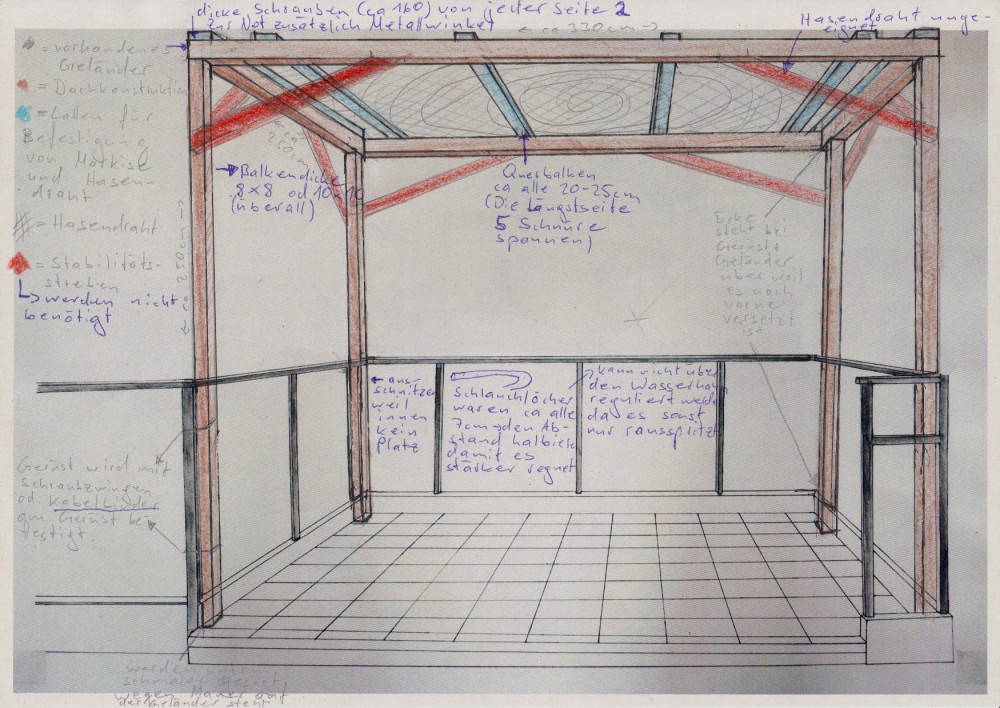 dicke Schrauben (ca 160) von jeder Seite 2
zur Not zusätzlich Metallwinkel
← ca 330cm →
Hasendraht unge-
eignet
= vorhandenes
Geländer
= Dachkonstruktion
= Latten für
Befestigung
von Markise
und Hasen-
draht
= Hasendraht
= Stabilitäts-
streben
werden nicht
benötigt
← ca 250cm →
ca
250cm
Balkendicke
8x8 od 10x10
(überall)
Querbalken
ca alle 20-25cm
(Die Längstseite
5 Schnüre
spannen)
Ecke
steht bei
Gerüst+
Geländer
über weil
es noch
vorne
versetzt
ist
← aus-
schnitzen
weil
innen
kein
Platz
Schlauchlöcher
waren ca alle
7cm → den Ab-
stand halbieren
damit es
stärker regnet
kann nicht über
den Wasserhahn
reguliert werden
da es sonst
nur rausspritzt
Gerüst wird mit
Schraubzwingen
od. Kabelbinder
am Gerüst be-
festigt.
werden
schmaler
wegen Mauer auf
der Geländer steht